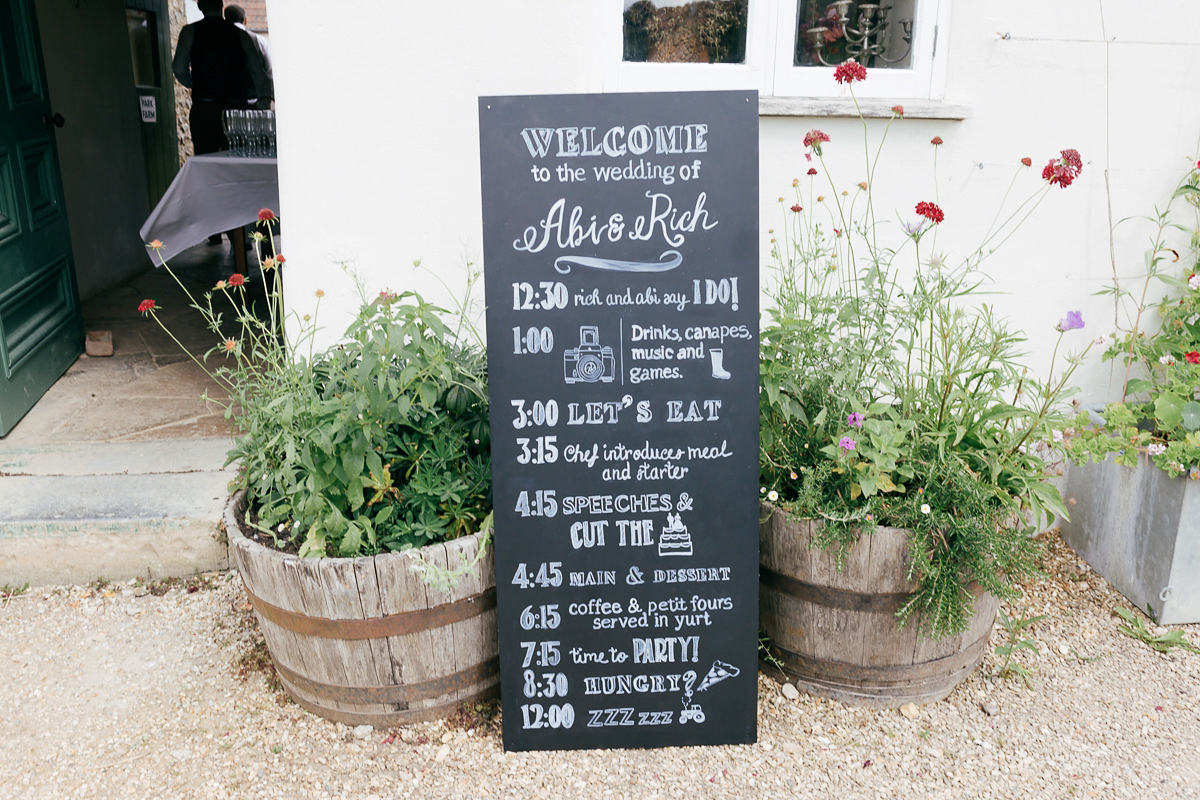 PARK
FARM
WELCOME
to the wedding of
Abi & Rich
12:30 rich and abi say I DO!
1:00 Drinks, canapes,
music and
games.
3:00 LET'S EAT
3:15 Chef introduces meal
and starter
4:15 SPEECHES &
CUT THE
4:45 MAIN & DESSERT
6:15 coffee & petit fours
served in yurt
7:15 time to PARTY!
8:30 HUNGRY?
12:00 ZZZ zzz